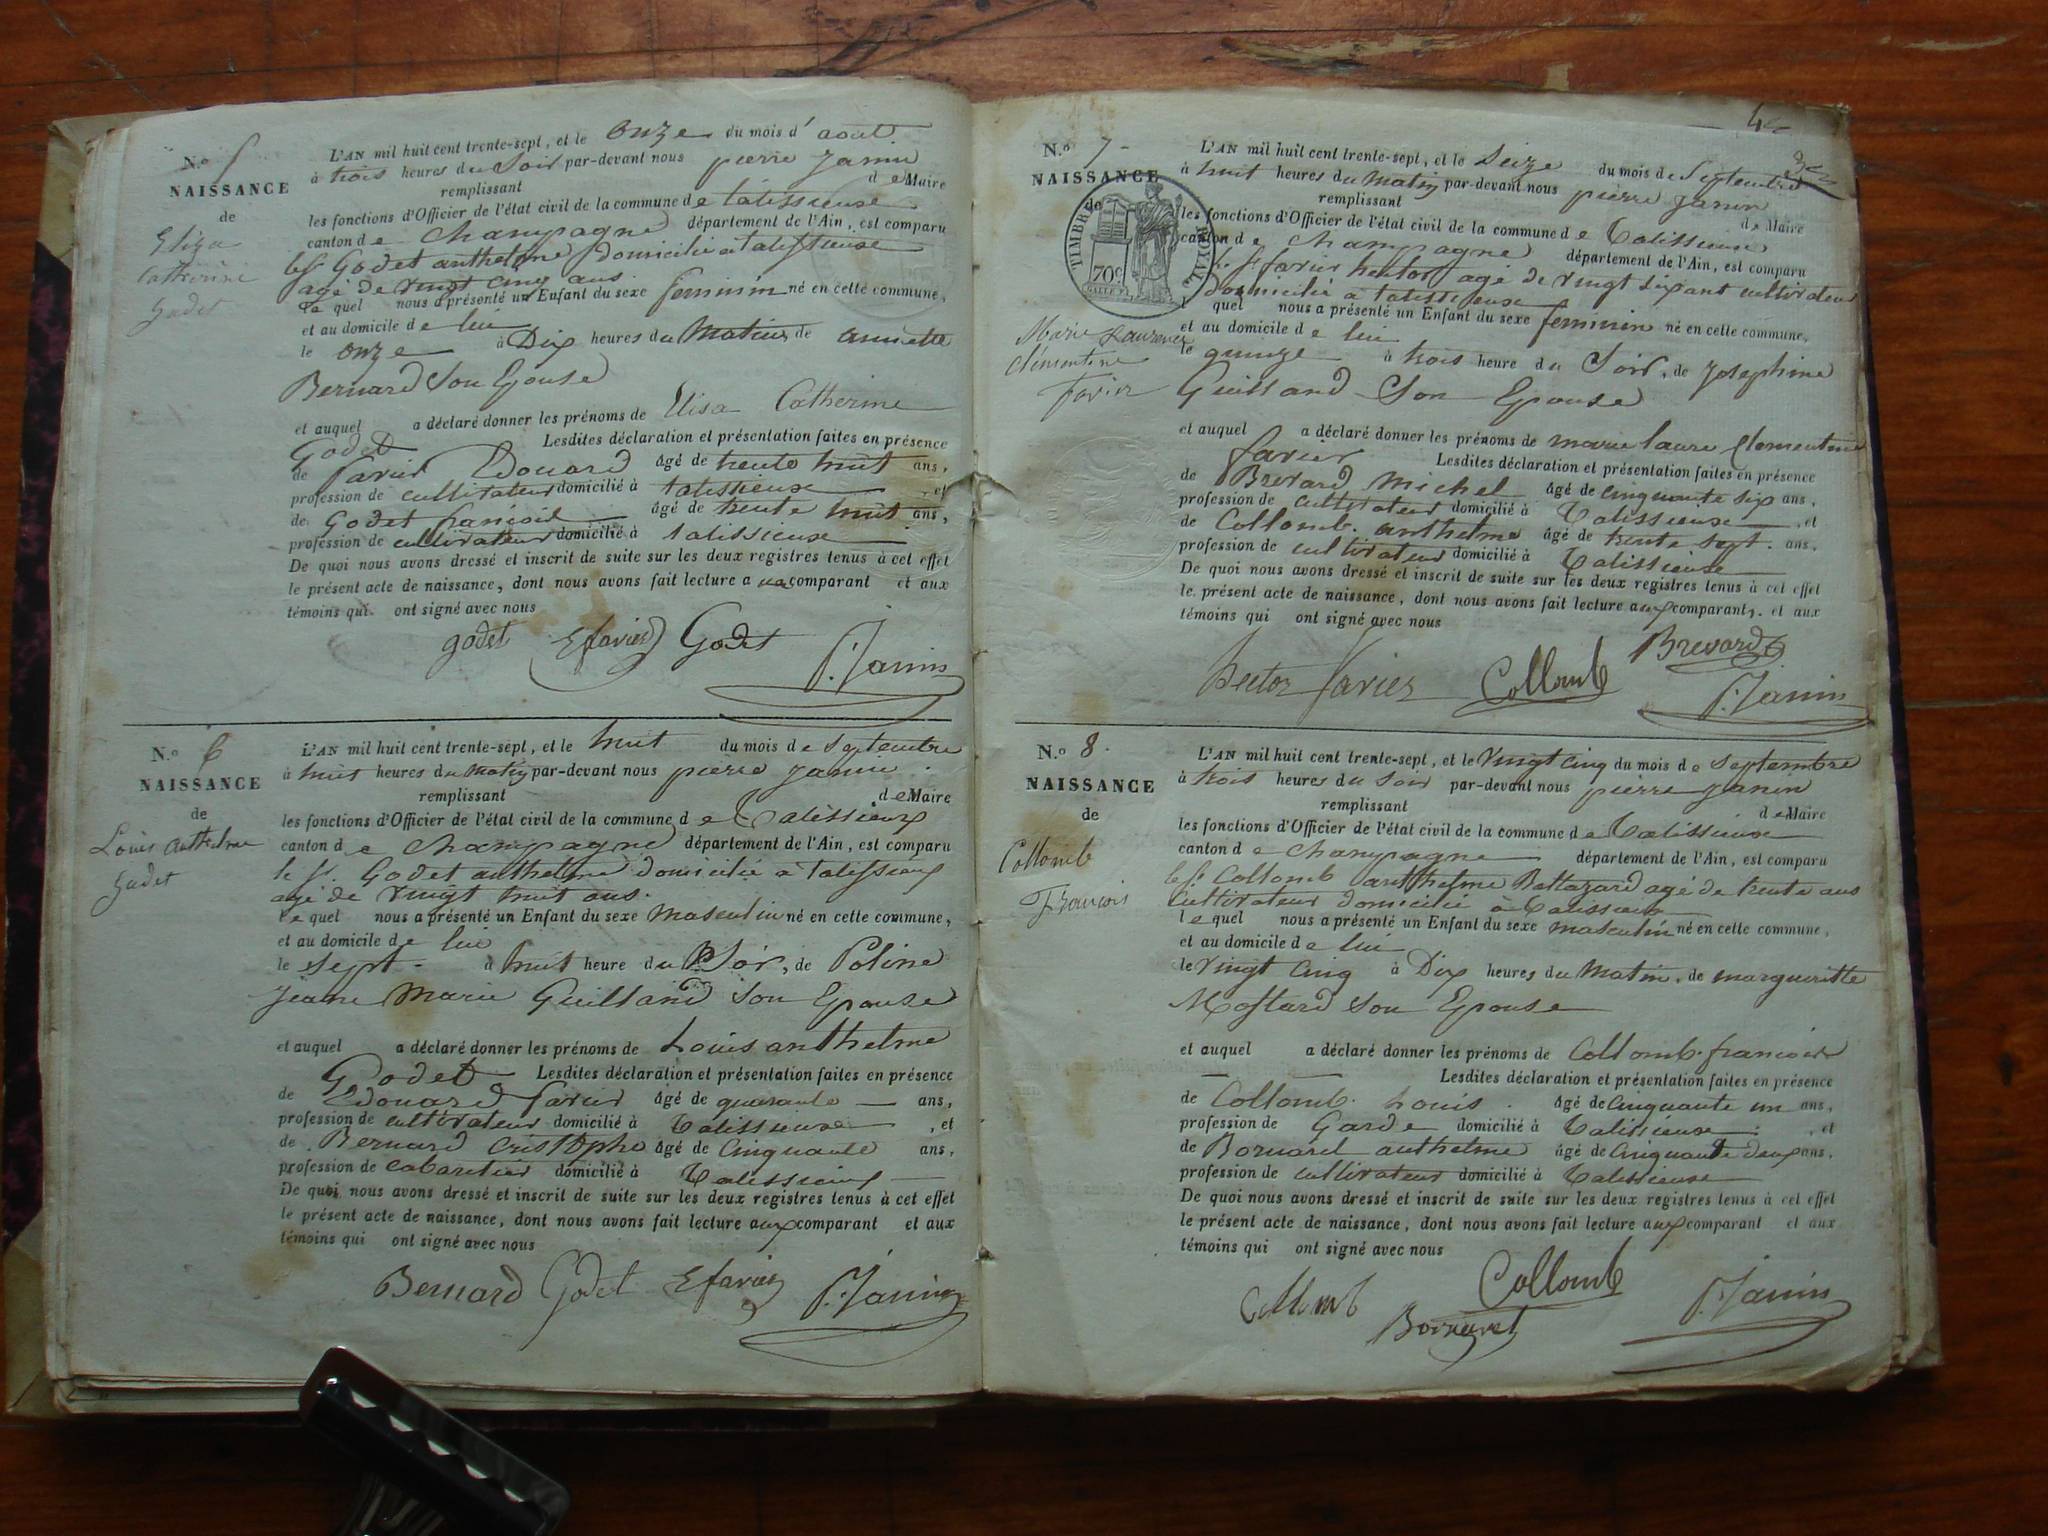 N.º 5
NAISSANCE
de
Eliza
Catherine
Godet
L'AN mil huit cent trente-sept, et le onze du mois d' août
à trois heures du Soir par-devant nous pierre Janin
remplissant de Maire
les fonctions d'Officier de l'état civil de la commune de talissieuse
canton de Champagne département de l'Ain, est comparu
le Sr Godet anthelme domicilié à talissieuse
agé de vingt cinq ans
le quel nous a présenté un Enfant du sexe feminin né en cette commune,
et au domicile de lui
le onze à Dix heures du Matin de annette
Bernard Son Epouse
et auquel a déclaré donner les prénoms de Elisa Catherine
Godet Lesdites déclaration et présentation faites en présence
de favier Edouard âgé de trente huit ans,
profession de cultivateur domicilié à talissieuse, et
de Godet francois âgé de trente huit ans,
profession de cultivateur domicilié à talissieuse
De quoi nous avons dressé et inscrit de suite sur les deux registres tenus à cet effet
le présent acte de naissance, dont nous avons fait lecture a comparant et aux
témoins qui ont signé avec nous
godet E favier Godet P. Janin
N.º 6
NAISSANCE
de
Louis anthelme
Godet
L'AN mil huit cent trente-sept, et le huit du mois de Septembre
à huit heures du Matin par-devant nous pierre Janin
remplissant de Maire
les fonctions d'Officier de l'état civil de la commune de Talissieux
canton de Champagne département de l'Ain, est comparu
le Sr. Godet anthelme domicilié à talissieux
agé de vingt huit ans.
le quel nous a présenté un Enfant du sexe masculin né en cette commune,
et au domicile de lui
le sept à huit heure du Soir, de Poline
Jeane Marie Guilland son Epouse
et auquel a déclaré donner les prénoms de Louis anthelme
Godet Lesdites déclaration et présentation faites en présence
de Edouard favier âgé de quarante ans,
profession de cultivateur domicilié à Talissieuse, et
de Bernard Cristophe âgé de Cinquante ans,
profession de cabaretier domicilié à Talissieux
De quoi nous avons dressé et inscrit de suite sur les deux registres tenus à cet effet
le présent acte de naissance, dont nous avons fait lecture aux comparant et aux
témoins qui ont signé avec nous
Bernard Godet E favier P. Janin
4
N.º 7
NAISSANCE
de
TIMBRE ROYAL
70c
Marie Laurence
Clémentine
Favier
L'AN mil huit cent trente-sept, et le Seize du mois de Septembre
à huit heures du Matin par-devant nous pierre Janin
remplissant de Maire
les fonctions d'Officier de l'état civil de la commune de Talissieuse
canton de Champagne département de l'Ain, est comparu
le Sr favier hector agé de vingt six ans cultivateur
domicilié à talissieuse
le quel nous a présenté un Enfant du sexe feminin né en cette commune,
et au domicile de lui
le quinze à trois heure du Soir, de Josephine
Guilland Son Epouse
et auquel a déclaré donner les prénoms de marie laure Clementine
favier Lesdites déclaration et présentation faites en présence
de Brevard Michel âgé de cinquante six ans,
profession de cultivateur domicilié à Talissieuse, et
de Collomb. anthelme âgé de trente sept ans,
profession de cultivateur domicilié à Talissieuse
De quoi nous avons dressé et inscrit de suite sur les deux registres tenus à cet effet
le présent acte de naissance, dont nous avons fait lecture aux comparants, et aux
témoins qui ont signé avec nous
hector favier Collomb Brevard P. Janin
N.º 8.
NAISSANCE
de
Collomb
François
L'AN mil huit cent trente-sept, et le vingt Cinq du mois de septembre
à trois heures du soir par-devant nous pierre Janin
remplissant de Maire
les fonctions d'Officier de l'état civil de la commune de Talissieuse
canton de Champagne département de l'Ain, est comparu
le Sr Collomb anthelme Baltazard agé de trente ans
cultivateur domicilié à Talissieux
le quel nous a présenté un Enfant du sexe masculin né en cette commune,
et au domicile de lui
le vingt Cinq à Dix heures du Matin, de margueritte
Mostard son Epouse
et auquel a déclaré donner les prénoms de Collomb. francois
Lesdites déclaration et présentation faites en présence
de Collomb. Louis âgé de Cinquante un ans,
profession de Garde domicilié à Talissieuse, et
de Bornarel anthelme âgé de Cinquante deux ans,
profession de cultivateur domicilié à Talissieuse
De quoi nous avons dressé et inscrit de suite sur les deux registres tenus à cet effet
le présent acte de naissance, dont nous avons fait lecture aux comparant et aux
témoins qui ont signé avec nous
Collomb Bornarel Collomb P. Janin